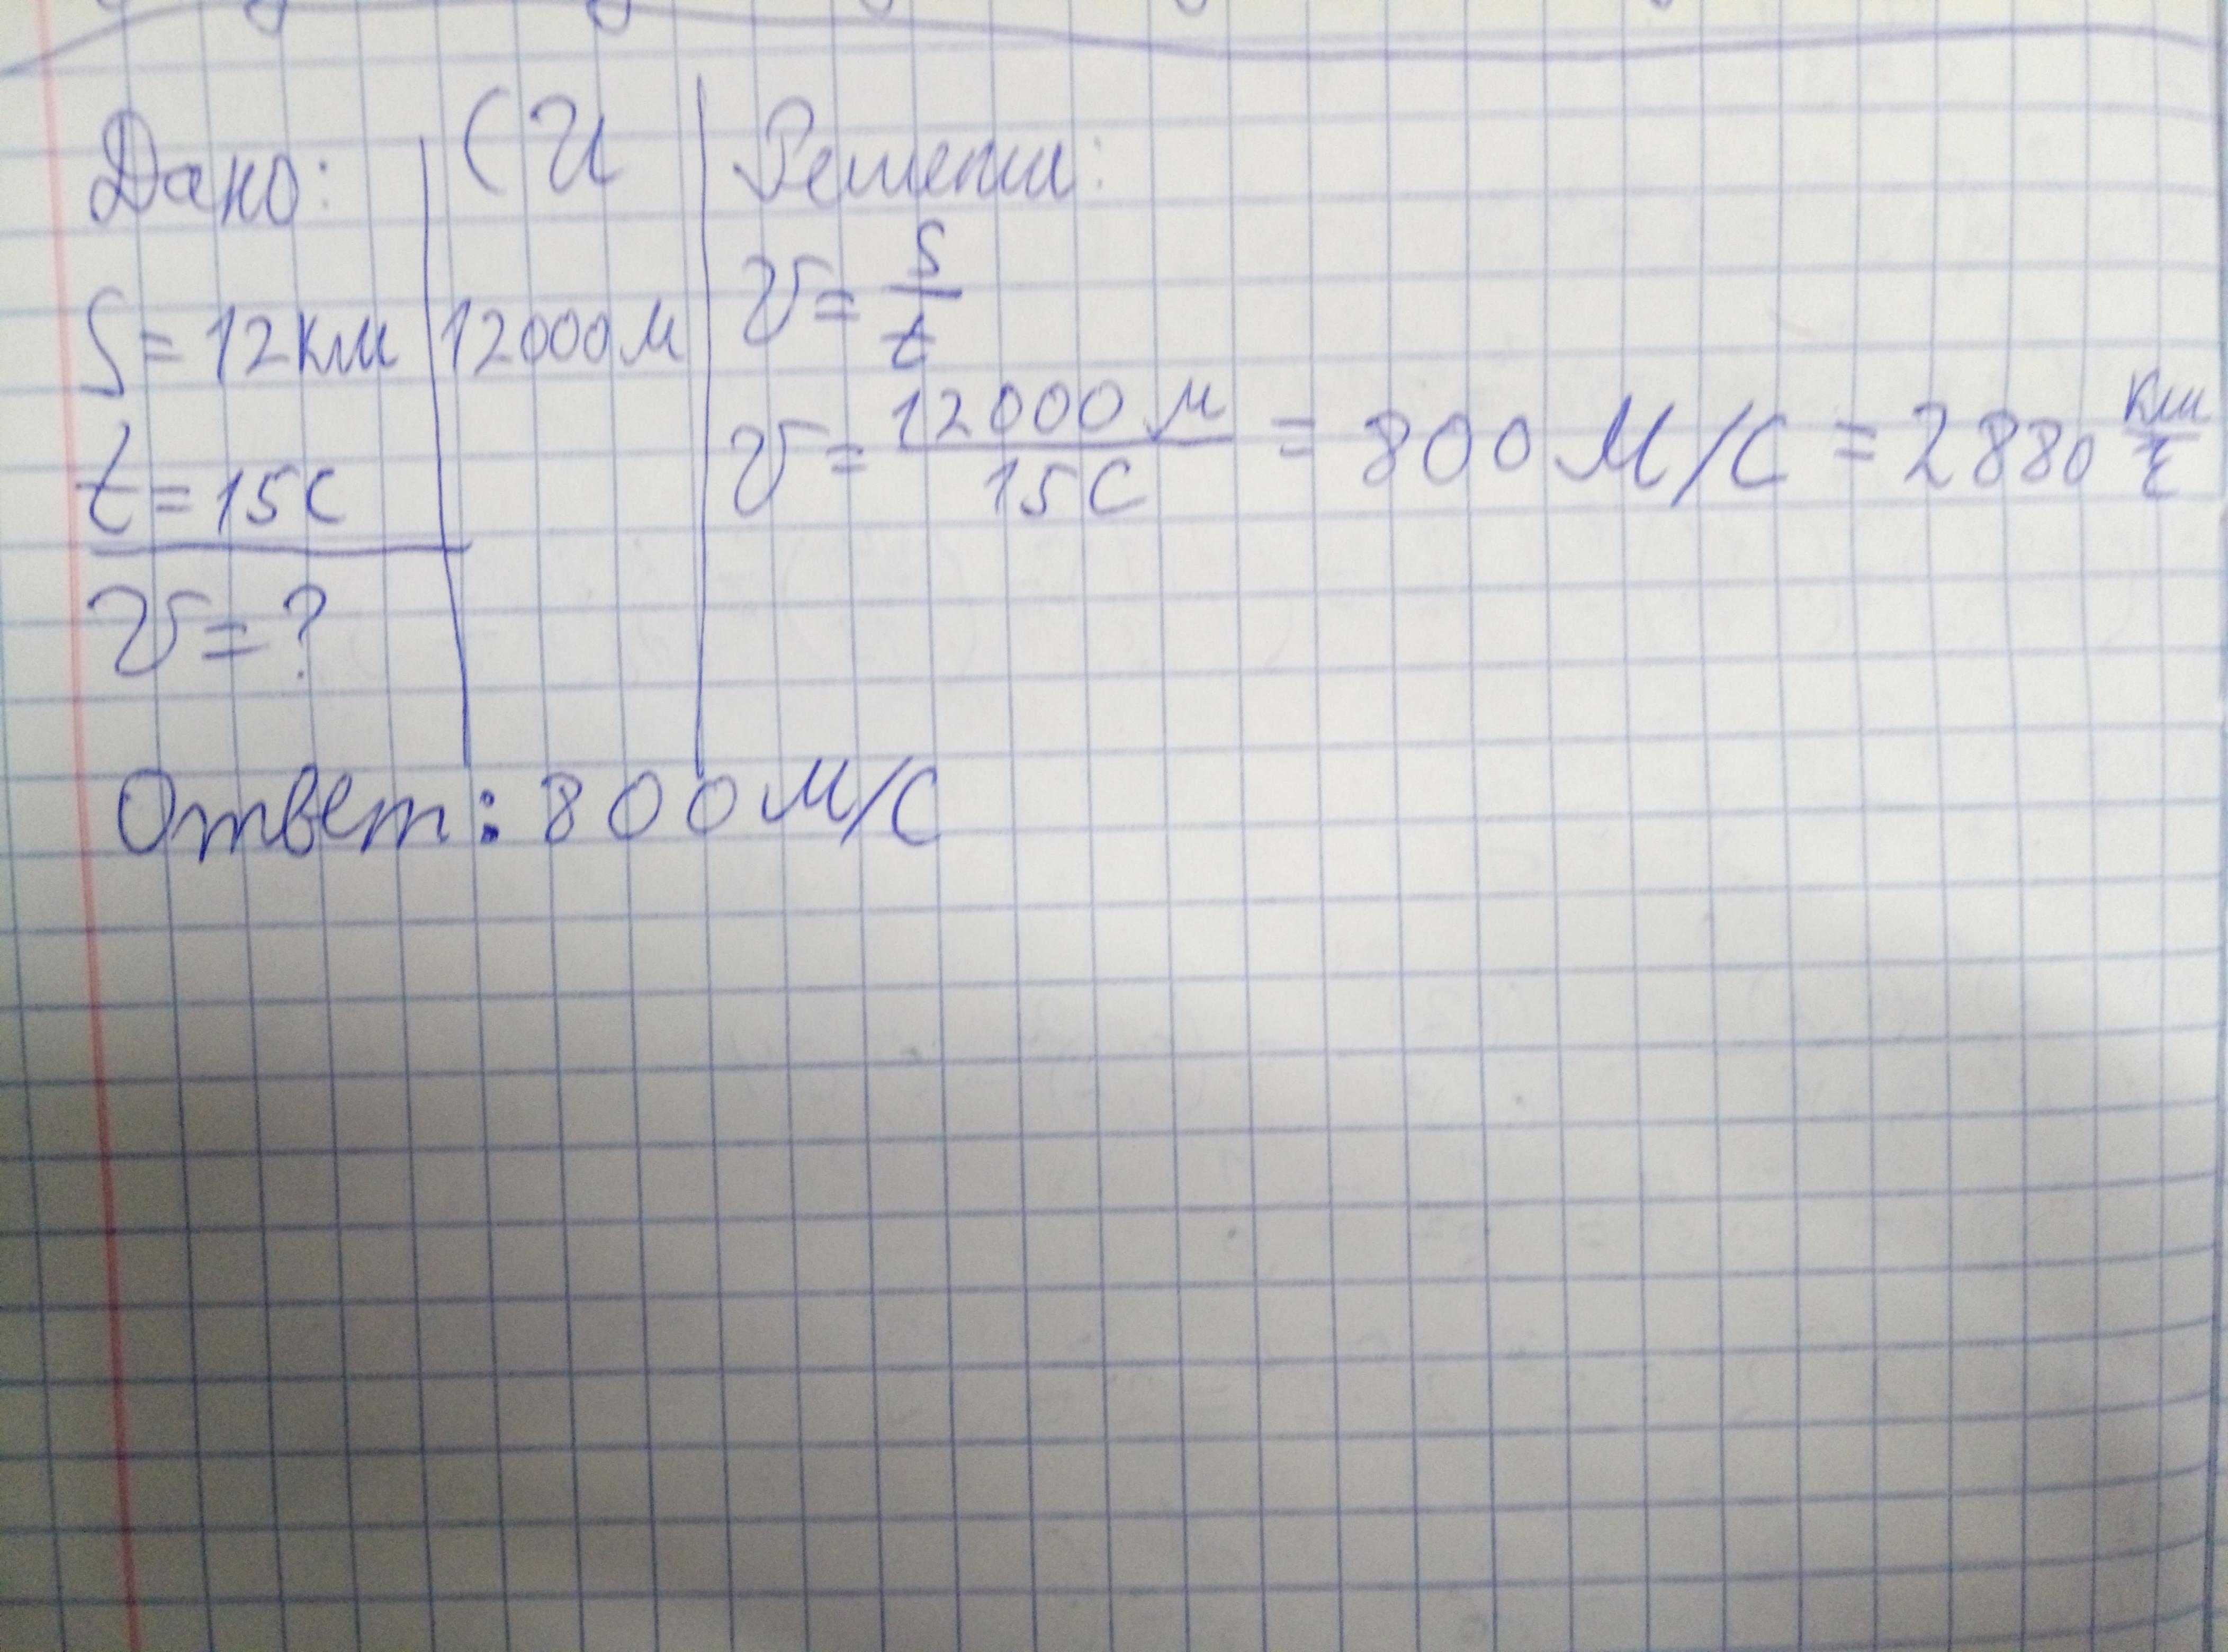 Дано: СИ Решении:
S = 12 км 12000 м v = s/t
t = 15 с v = 12000 м / 15 с = 800 м/с = 2880 км/ч
v = ?
Ответ: 800 м/с